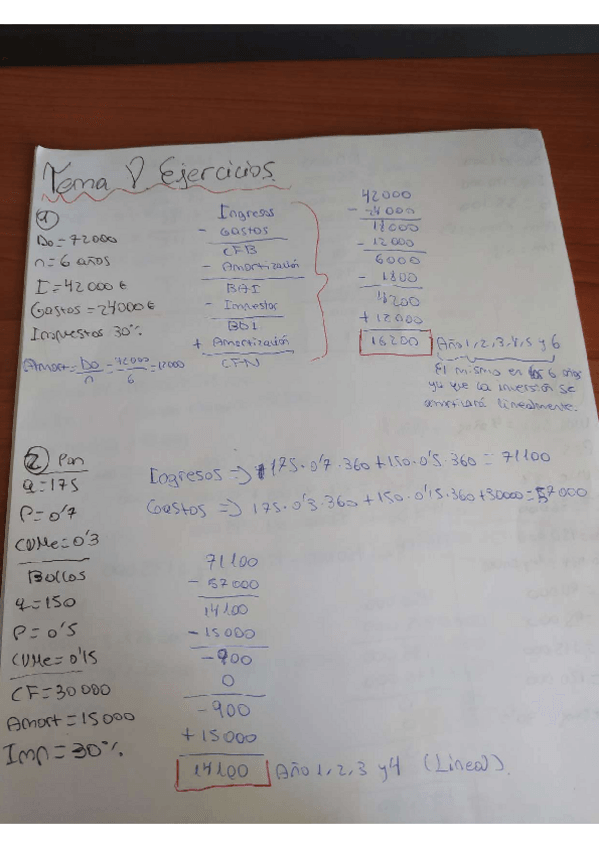 Tema 8 Ejercicios
1
Do = 72000
n = 6 años
I = 42000 €
Gastos = 24000 €
Impuestos 30%
Amort = Do/n = 72000/6 = 12000
Ingresos
- Gastos
CFB
- Amortización
BAI
- Impestos
BDI
+ Amortización
CFN
42000
- 24000
18000
- 12000
6000
- 1800
4200
+ 12000
16200 Año 1, 2, 3, 4, 5 y 6
El mismo en los 6 años
ya que la inversión se
amortizará linealmente.
2 Pan
q = 175
P = 0'7
CVMe = 0'3
Bollos
q = 150
P = 0'5
CVMe = 0'15
CF = 30000
Amort = 15000
Imp = 30%
Ingresos => 175·0'7·360 + 150·0'5·360 = 71100
Gastos => 175·0'3·360 + 150·0'15·360 + 30000 = 57000
71100
- 57000
14100
- 15000
-900
0
-900
+ 15000
14100 Año 1, 2, 3 y 4 (Lineal).